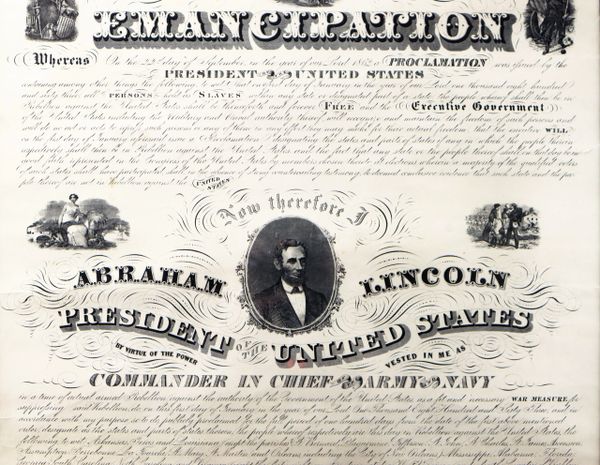 EMANCIPATION
Whereas On the 22d day of September, in the year of our Lord 1862, a PROCLAMATION was issued by the
PRESIDENT OF THE UNITED STATES
containing among other things the following to wit: that on the first day of January in the year of our Lord one thousand eight hundred
and sixty three all PERSONS held as SLAVES within any state or designated part of a state the people whereof shall then be in
Rebellion against the United States shall be thenceforth and forever FREE and the Executive Government
of the United States including the Military and Naval authority thereof will recognize and maintain the freedom of such persons and
will do no act or acts to repress such persons or any of them in any effort they may make for their actual freedom. that the executive WILL
on the first day of January aforesaid issue a Proclamation designating the states and parts of States if any in which the people therein
respectively shall then be in Rebellion against the United States and the fact that any state or the people thereof shall on that day be in
good faith represented in the Congress of the United States by members chosen thereto at elections wherein a majority of the qualified voters
of such states shall have participated shall in the absence of strong countervailing testimony be deemed conclusive evidence that such state and the peo-
ple thereof are not in rebellion against the UNITED STATES
Now therefore I
ABRAHAM LINCOLN
PRESIDENT OF THE UNITED STATES
BY VIRTUE OF THE POWER VESTED IN ME AS
COMMANDER IN CHIEF OF THE ARMY AND NAVY
in a time of actual armed Rebellion against the authority of the Government of the United States, as a fit and necessary WAR MEASURE for
suppressing said Rebellion, do, on this first day of January in the year of our Lord One Thousand Eight Hundred and Sixty Three, and in
accordance with my purpose so to do publicly proclaimed for the full period of one hundred days from the date of the first above mentioned
order, designate as the states and parts of States therein the people whereof respectively are this day in Rebellion against the United States, the
following to wit: Arkansas, Texas and Louisiana except the parishes of St Bernard, Plaquemines, Jefferson, St John, St Charles, St James, Ascension,
Assumption, Terrebonne, La Fourche, St Mary, St Martin and Orleans including the City of New Orleans, Mississippi, Alabama, Florida,